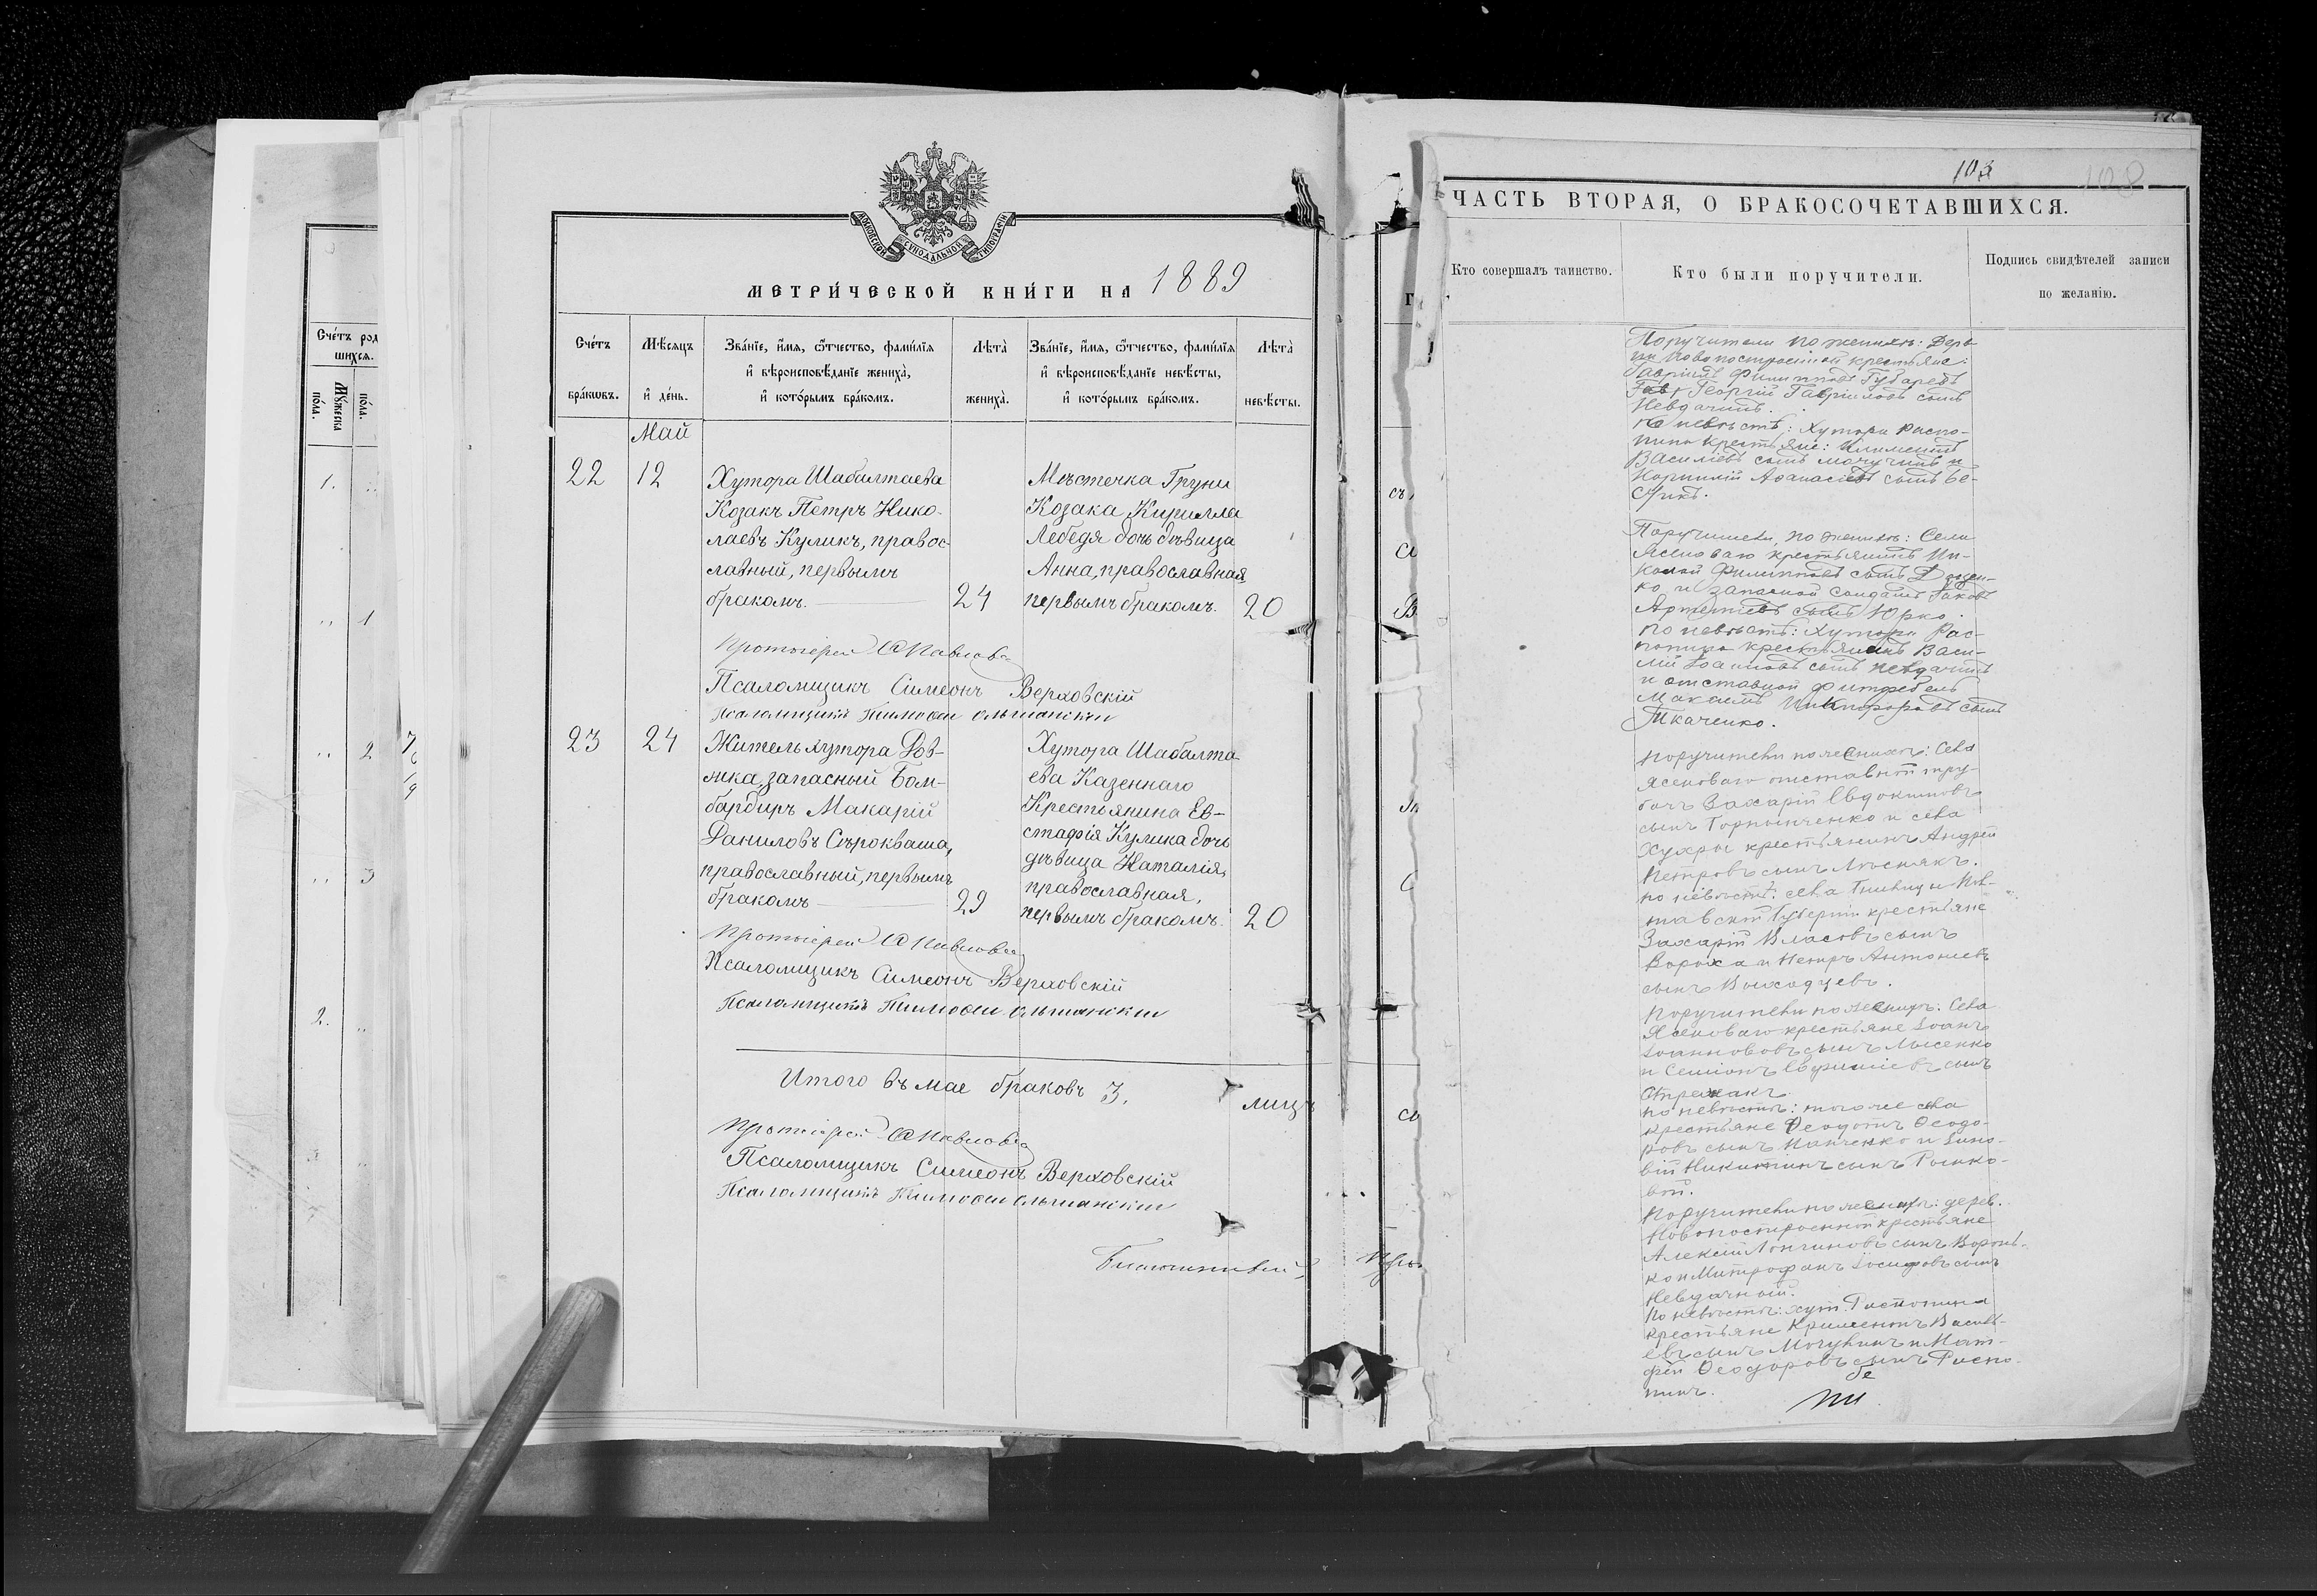 МОСКОВСКОЙ СУНОДАЛЬНОЙ ТИПОГРАФІИ
МЕТРИ́ЧЕСКОЙ КНИ́ГИ НА 1889
Сче́тъ бра́кѡвъ.
Мѣ́сяцъ и҆ де́нь.
Зва́нїе, и҆́мя, ѻ҆́тчество, фами́лїя и҆ вѣроисповѣ́данїе жениха̀, и҆ кото́рымъ бра́комъ.
Лѣта̀ жениха̀.
Зва́нїе, и҆́мя, ѻ҆́тчество, фами́лїя и҆ вѣроисповѣ́данїе невѣ́сты, и҆ кото́рымъ бра́комъ.
Лѣта̀ невѣ́сты.
Май
22
12
Хутора Шабалтаева
Козакъ Петръ Нико-
лаевъ Куликъ, правос-
лавный, первымъ
бракомъ. 24
Мѣстечка Груни
Козака Кирилла
Лебедя дочь дѣвица
Анна, православная
первымъ бракомъ. 20
Протоіерей Павлов
Псаломщикъ Симеонъ Верховскій
Псаломщикъ Тимофей Ольшанскій
23
24
Житель хутора Ров-
запасный Бом-
бардиръ Макарій
Даниловъ Сѣрокваша,
православный, первымъ
бракомъ 29
Хутора Шабалта-
ева Казеннаго
Крестьянина Ев-
стафія Кулика дочь
дѣвица Наталія,
православная,
первымъ бракомъ. 20
Протоіерей Павлов
Псаломщикъ Симеонъ Верховскій
Псаломщикъ Тимофей Ольшанскій
Итого въ мае браковъ 3.
лицъ
Протоіерей Павлов
Псаломщикъ Симеонъ Верховскій
Псаломщикъ Тимофей Ольшанскій
Сче́тъ род
шихся.
Му́жеска по́ла.
по́ла.
1.
1
2
3
2.
103
108
ЧАСТЬ ВТОРАЯ, О БРАКОСОЧЕТАВШИХСЯ.
Кто совершалъ таинство.
Кто были поручители.
Подпись свидѣтелей записи по желанію.
Поручители по женихѣ: Дерев
ни Новопостроенной крестьяне:
Гавріилъ Филипповъ Губаревъ
Георгій Гавріиловъ сынъ
Невдачинъ.
по невѣстѣ: Хутора Распо-
пина крестьяне: Климентъ
Василіевъ сынъ и
Корнилій Аѳанасіевъ сынъ Бе-
Поручители, по женихѣ: Села
Ясеноваго крестьянинъ Ни-
колай Филипповъ сынъ
ко и запасной солдатъ Іаковъ
Артеміевъ сынъ Юрко.
по невѣстѣ: Хутора Рас-
попина крестьянинъ Васи-
лій Іоанновъ сынъ Невдачинъ
и отставной фитфебель
Максимъ Никифоровъ сынъ
Ткаченко.
Поручители по женихѣ: Села
Ясеноваго отставной тру-
бачъ Захарій Евдокимовъ
сынъ Горпынченко и села
Хухры крестьянинъ Андрей
Петровъ сынъ Лисякъ.
по невѣстѣ: села Пол-
тавской Губерніи крестьяне
Захарій Власовъ сынъ
Вороха и Петръ Антоніевъ
сынъ
Поручители по женихѣ: Села
Ясеноваго крестьяне Іоанъ
Іоанновъ сынъ Лысенко
и Симеонъ сынъ
по невѣстѣ: того же села
крестьяне Ѳеодотъ Ѳеодо-
ровъ сынъ Панченко и Зино-
вій Никитинъ сынъ
Поручители по женихѣ: дерев.
Новопостроенной крестьяне
Алексій Лонгиновъ сынъ
ко и Митрофанъ Іосифовъ сынъ
Невдачный.
По невѣстѣ: хут. Распопина
крестьяне Климентъ Василі-
евъ сынъ и Мат-
фей Ѳеодоровъ сынъ Распо-
пинъ.